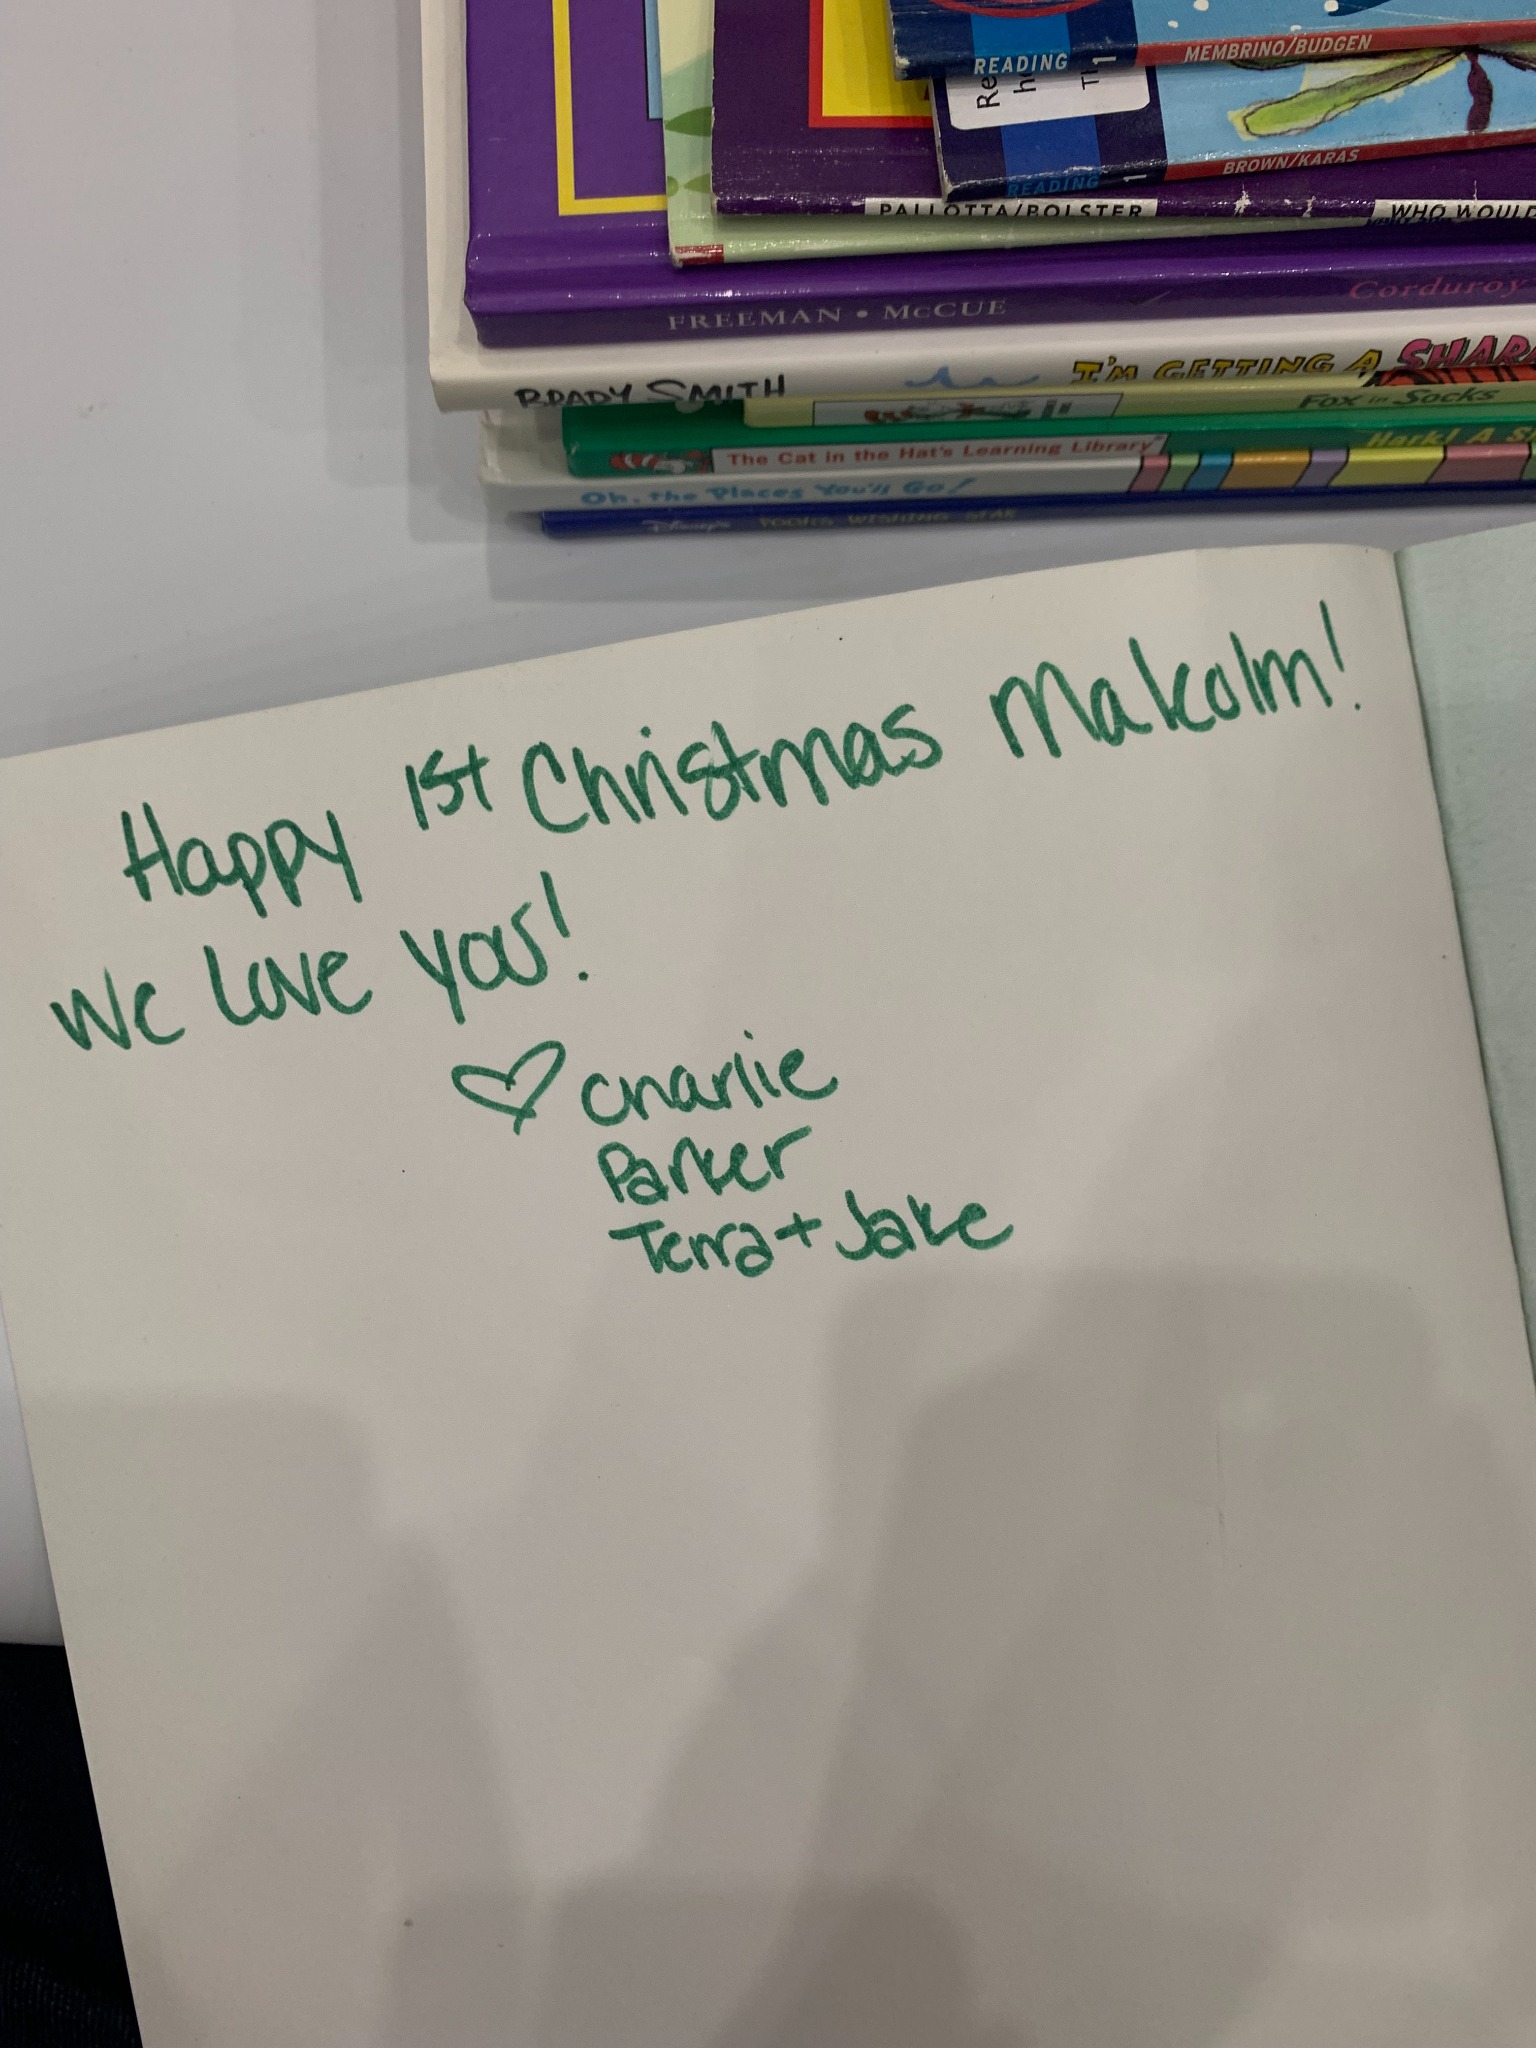 READING
1
MEMBRINO/BUDGEN
Re
h
Th
READING
1
BROWN/KARAS
PALLOTTA/BOLSTER WHO WOULD
FREEMAN • McCUE Corduroy
BRADY SMITH I'M GETTING A SHARK
Fox in Socks
The Cat in the Hat's Learning Library™ Hark! A
Oh, the Places You'll Go!
Disney's POOH'S WISHING STAR
Happy 1st Christmas Makolm!
We Love you!
♡ Charlie
Parker
Terra + Jake